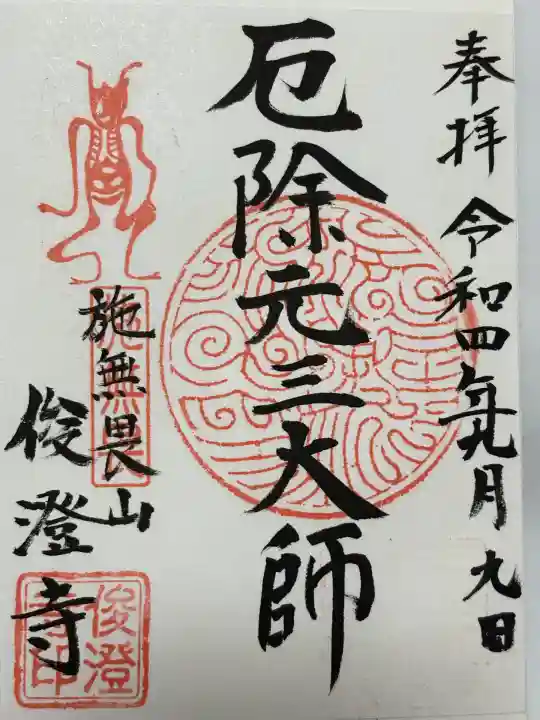 奉拝 令和四年九月九日
厄除元三大師
施無畏山
俊澄寺
施無畏山
俊澄寺印